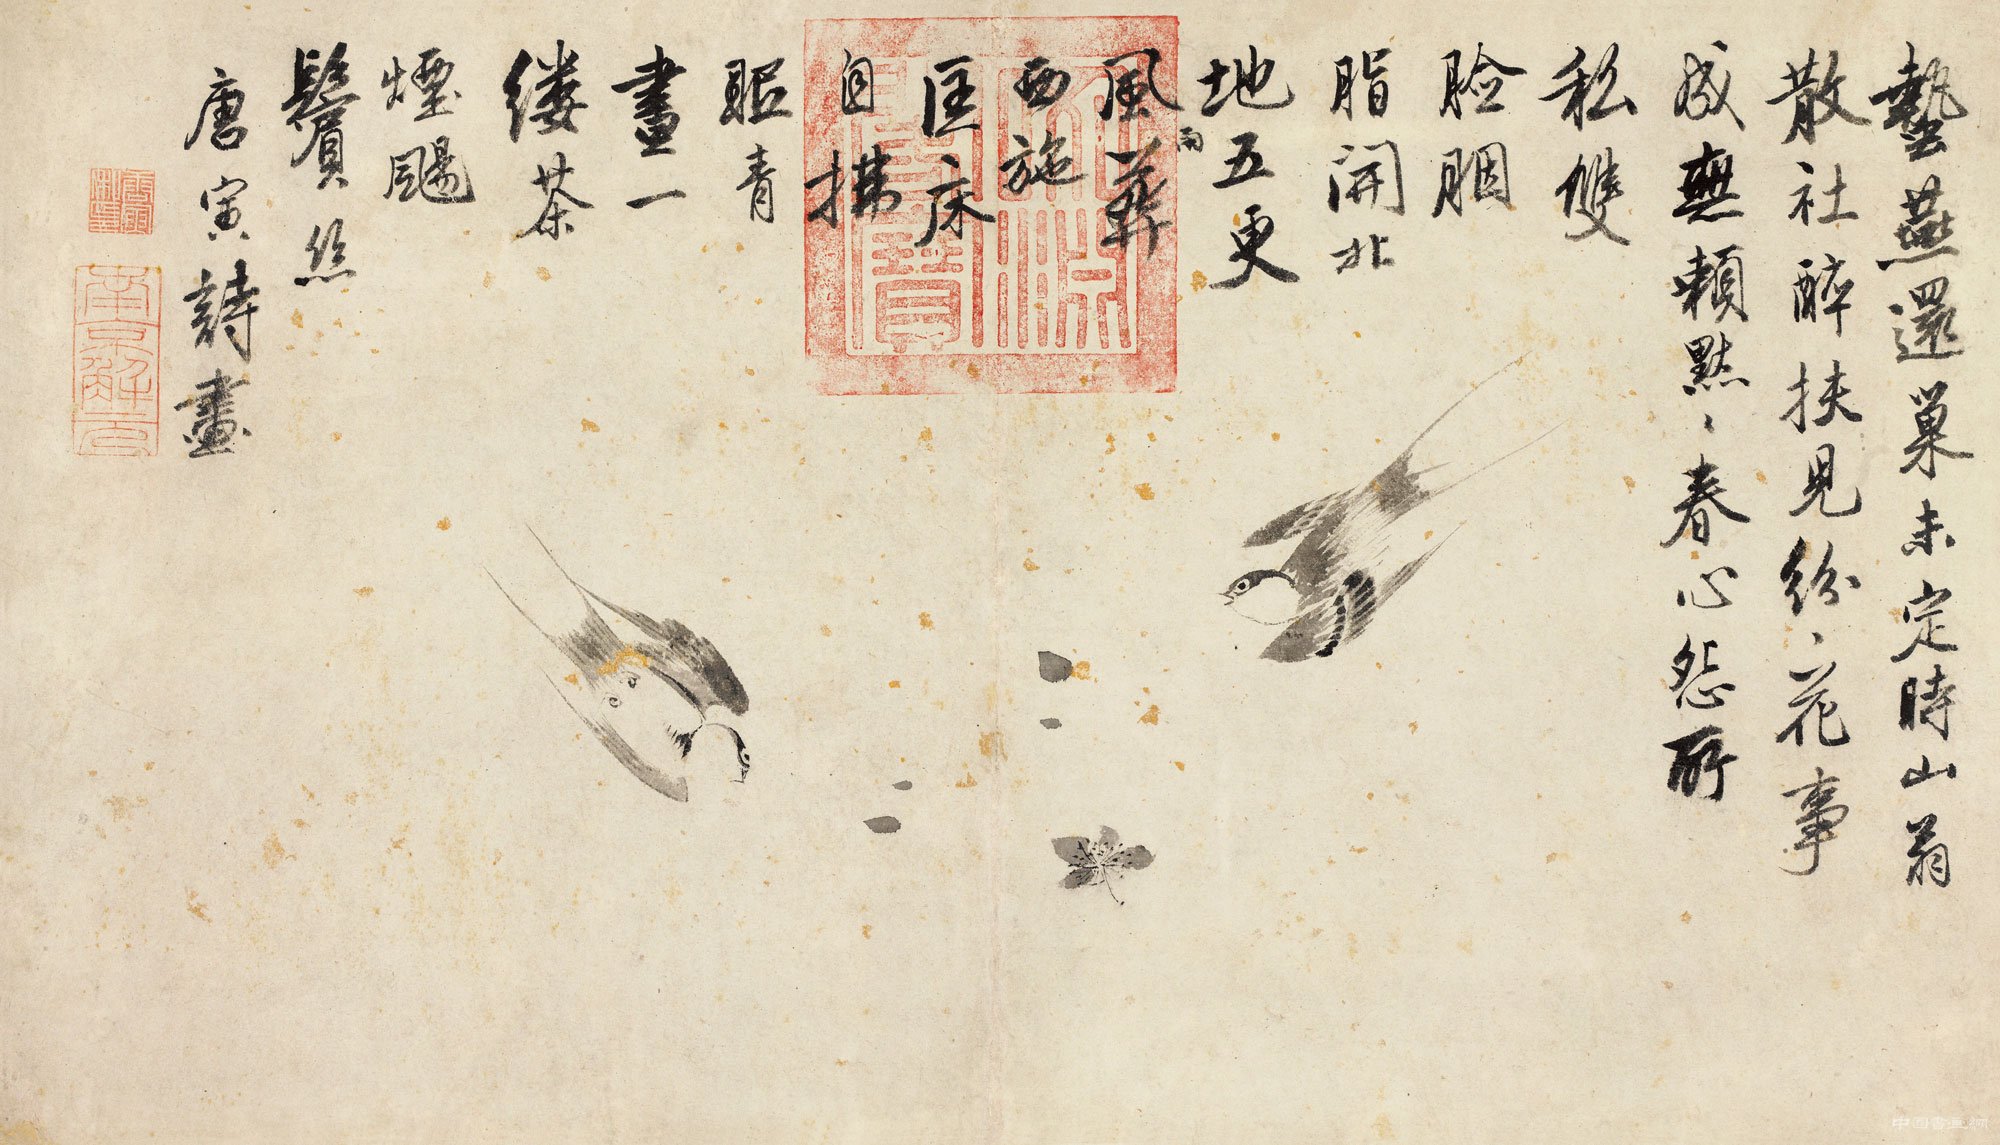 藝燕還巢未定時山翁
散社醉扶兒紛、花事
成無賴默、春心怨所
私雙
臉胭
脂開北
地五更
風雨葬
西施
匡床
自拂
眠青
晝一
縷茶
煙颺
鬢絲
唐寅詩畫
南京解元